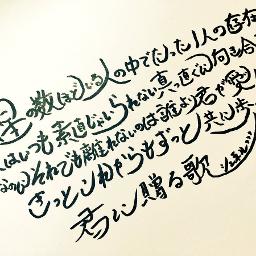 星の数ほどいる人の中でたった1人の存在
はいつも素直じゃいられない真っ直ぐに向き合
なのにそれでも離れないのは誰より君が愛し
きっとこれからもずっと共に歩
君に贈る歌
シェネル